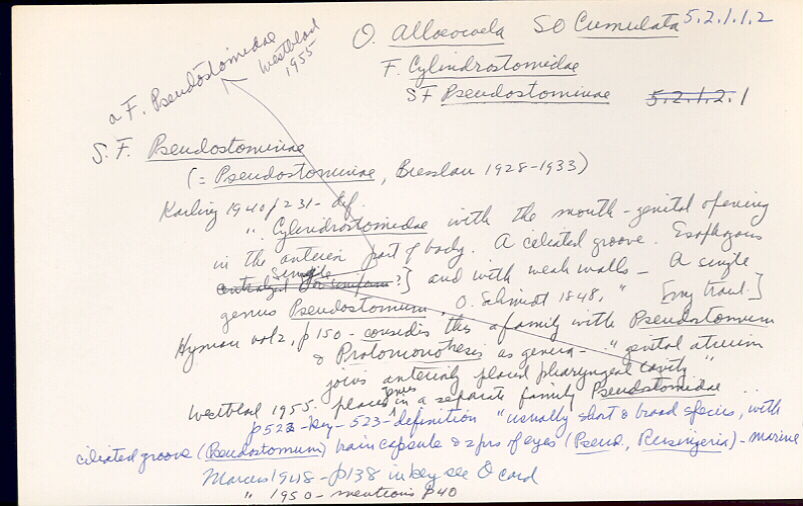 O. Alloeocoela SO Cumulata 5.2.1.1.2
F. Cylindrostomidae
SF Pseudostominae 5.2.1.2.1
a F. Pseudostomidae
Westblad
1955
S. F. Pseudostominae
(= Pseudostominae, Bresslau 1928-1933)
Karling 1940 p 231- def.
" Cylindrostomidae with the mouth-genital opening
in the anterior part of body. A ciliated groove. Esophagous
simple ?] and with weak walls - A single
genus Pseudostomum, O. Schmidt 1848," [my transl.]
Hyman vol 2, p 150 - considers this a family with Pseudostomum
& Protomonotresis as genera - "genital atrium
joins anteriorly placed pharyngeal cavity"
Westblad 1955 places genus in a separate family Pseudostomidae
p 522 - key - 523 - definition "usually short & broad species, with
ciliated groove (Pseudostomum) brain capsule & 2 prs of eyes (Pseud, Reisingeria) - marine
Marcus 1948 - p 138 in key see O card
" 1950 - mentions p 40